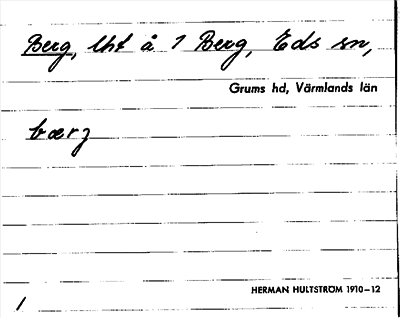 Berg, lht å 1 Berg, Eds sn,
Grums hd, Värmlands län
bærj
HERMAN HULTSTRÖM 1910–12
1